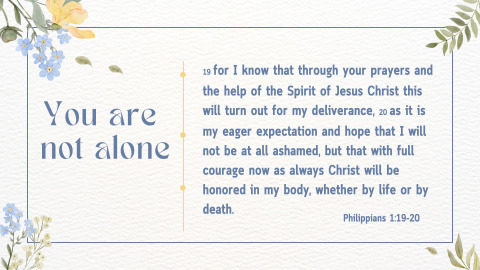 You are
not alone
19 for I know that through your prayers and
the help of the Spirit of Jesus Christ this
will turn out for my deliverance, 20 as it is
my eager expectation and hope that I will
not be at all ashamed, but that with full
courage now as always Christ will be
honored in my body, whether by life or by
death.
Philippians 1:19-20